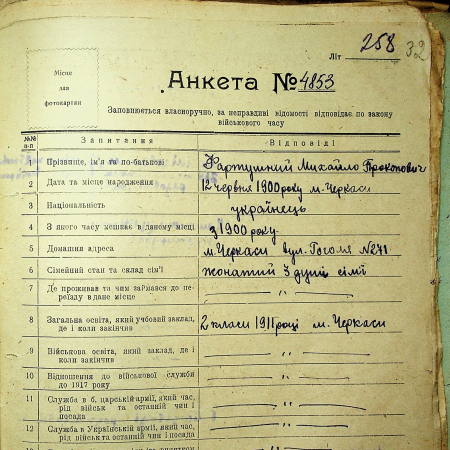 Літ 258
32
Місце
для
фотокартки
Анкета № 4853
Заповнюється власноручно, за неправдиві відомості відповідає по закону
військового часу
№№
п-п
Запитання
Відповіді
1 Прізвище, ім'я та по-батькові Фартушний Михайло Прокопович
2 Дата та місце народження 12 червня 1900 року м. Черкаси
3 Національність українець
4 З якого часу мешкає в даному місці з 1900 року
5 Домашня адреса м. Черкаси вул. Гоголя №271
6 Сімейний стан та склад сім'ї жонатий 3 душі сімї
7 Де проживав та чим займався до пе-
реїзду в дане місце — „ —
8 Загальна освіта, який учбовий заклад,
де і коли закінчив 2 класи 1911 році м. Черкаси
9 Військова освіта, який заклад, де і
коли закінчив — „ —
10 Відношення до військової служби
до 1917 року — „ —
11 Служба в б. царській армії, який час,
рід військ та останній чин і
посада — „ —
12 Служба в Українській армії, який час,
рід військ та останній чин і посада — „ —